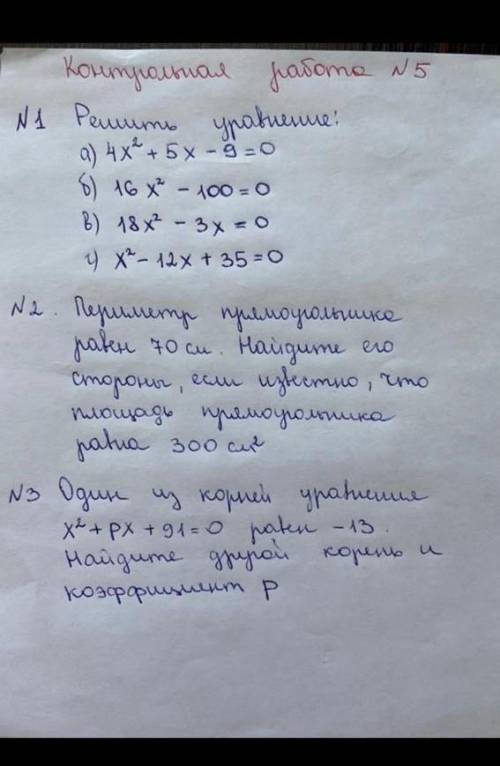 Контрольная работа N5
N1 Решить уравнение:
а) 4x² + 5x - 9 = 0
б) 16x² - 100 = 0
в) 18x² - 3x = 0
г) x² - 12x + 35 = 0
N2. Периметр прямоугольника
равен 70 см. Найдите его
стороны, если известно, что
площадь прямоугольника
равна 300 см²
N3 Один из корней уравнения
x² + px + 91 = 0 равен -13.
Найдите другой корень и
коэффициент p